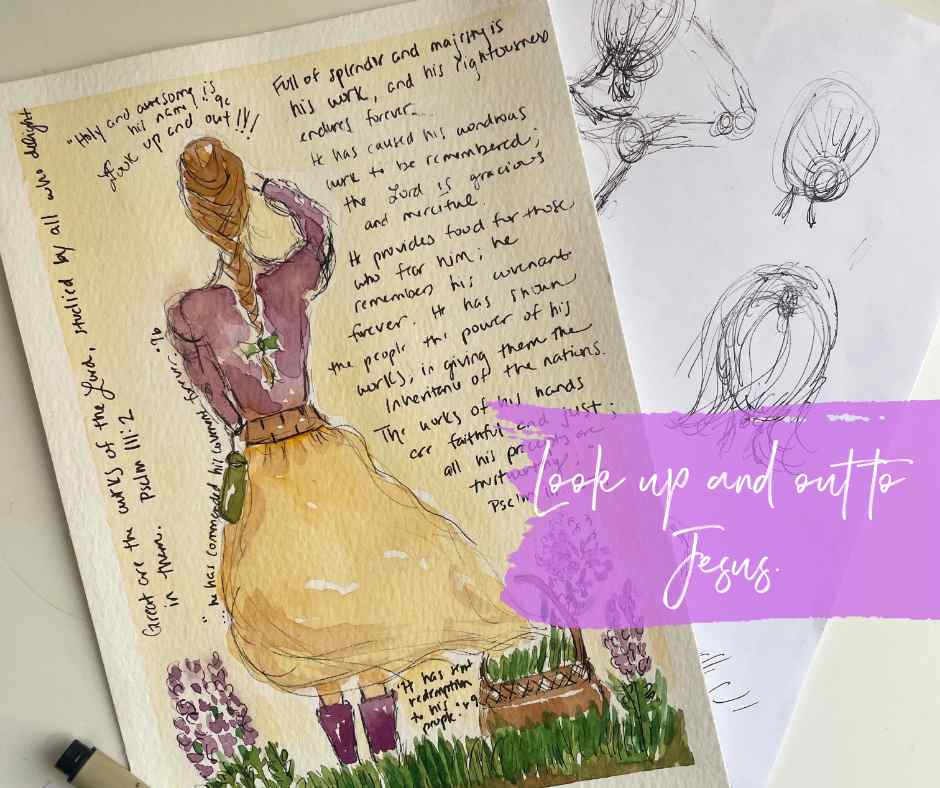 "Holy and awesome is
his name". 9c
Look up and out!!!
Full of splendor and majesty is
his work, and his righteousness
endures forever...
He has caused his wondrous
work to be remembered;
the Lord is gracious
and merciful.
He provides food for those
who fear him; he
remembers his covenant
forever. He has shown
the people the power of his
works, in giving them the
inheritance of the nations.
The works of his hands
are faithful and just;
all his precepts are
trustworthy;
Psalm
Great are the works of the Lord, studied by all who delight
in them. Psalm 111:2
"he has commanded his covenant forever." 9b
"He has sent
redemption
to his
people." v9
Look up and out to
Jesus.